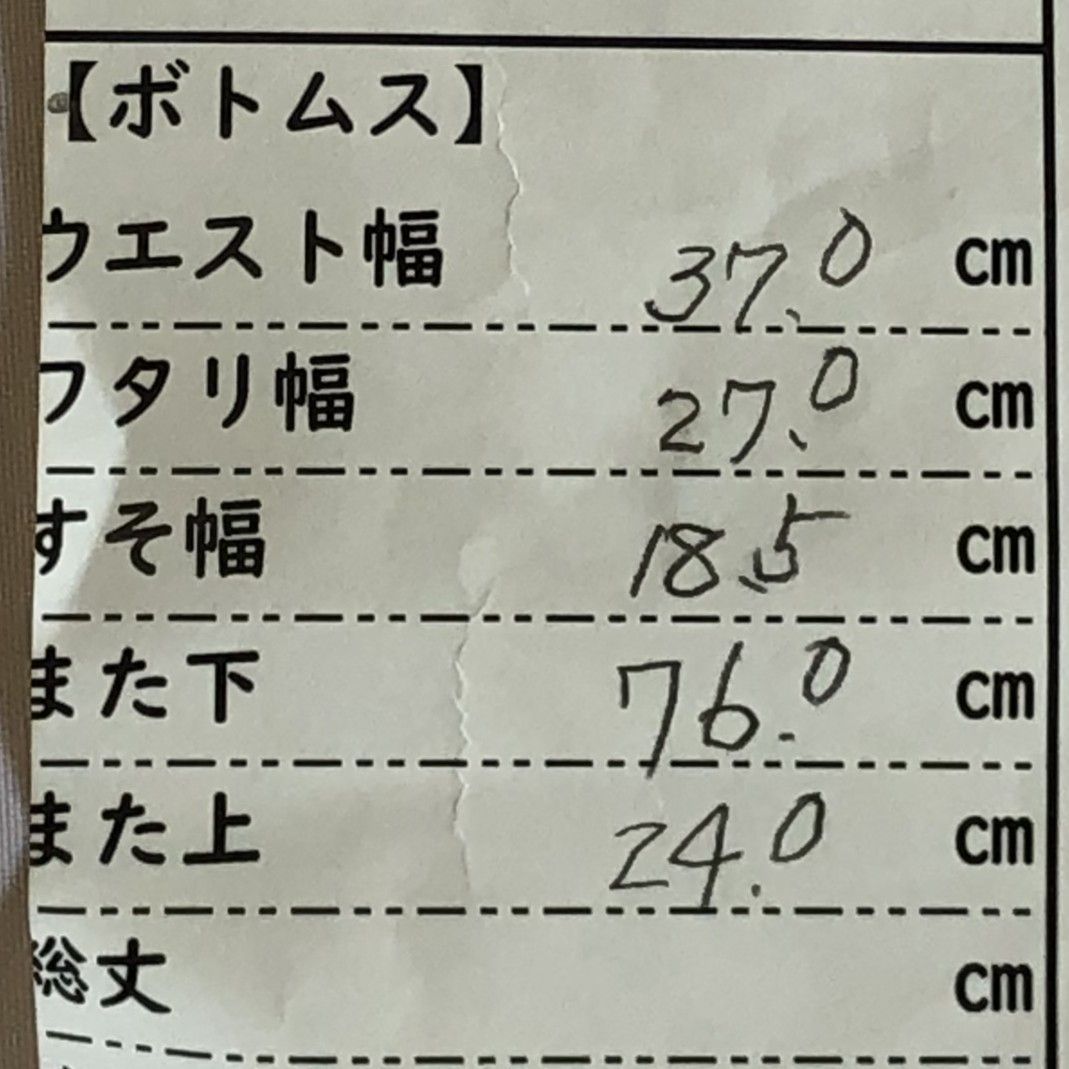 【ボトムス】
ウエスト幅 37.0 cm
ワタリ幅 27.0 cm
すそ幅 18.5 cm
また下 76.0 cm
また上 24.0 cm
総丈 cm